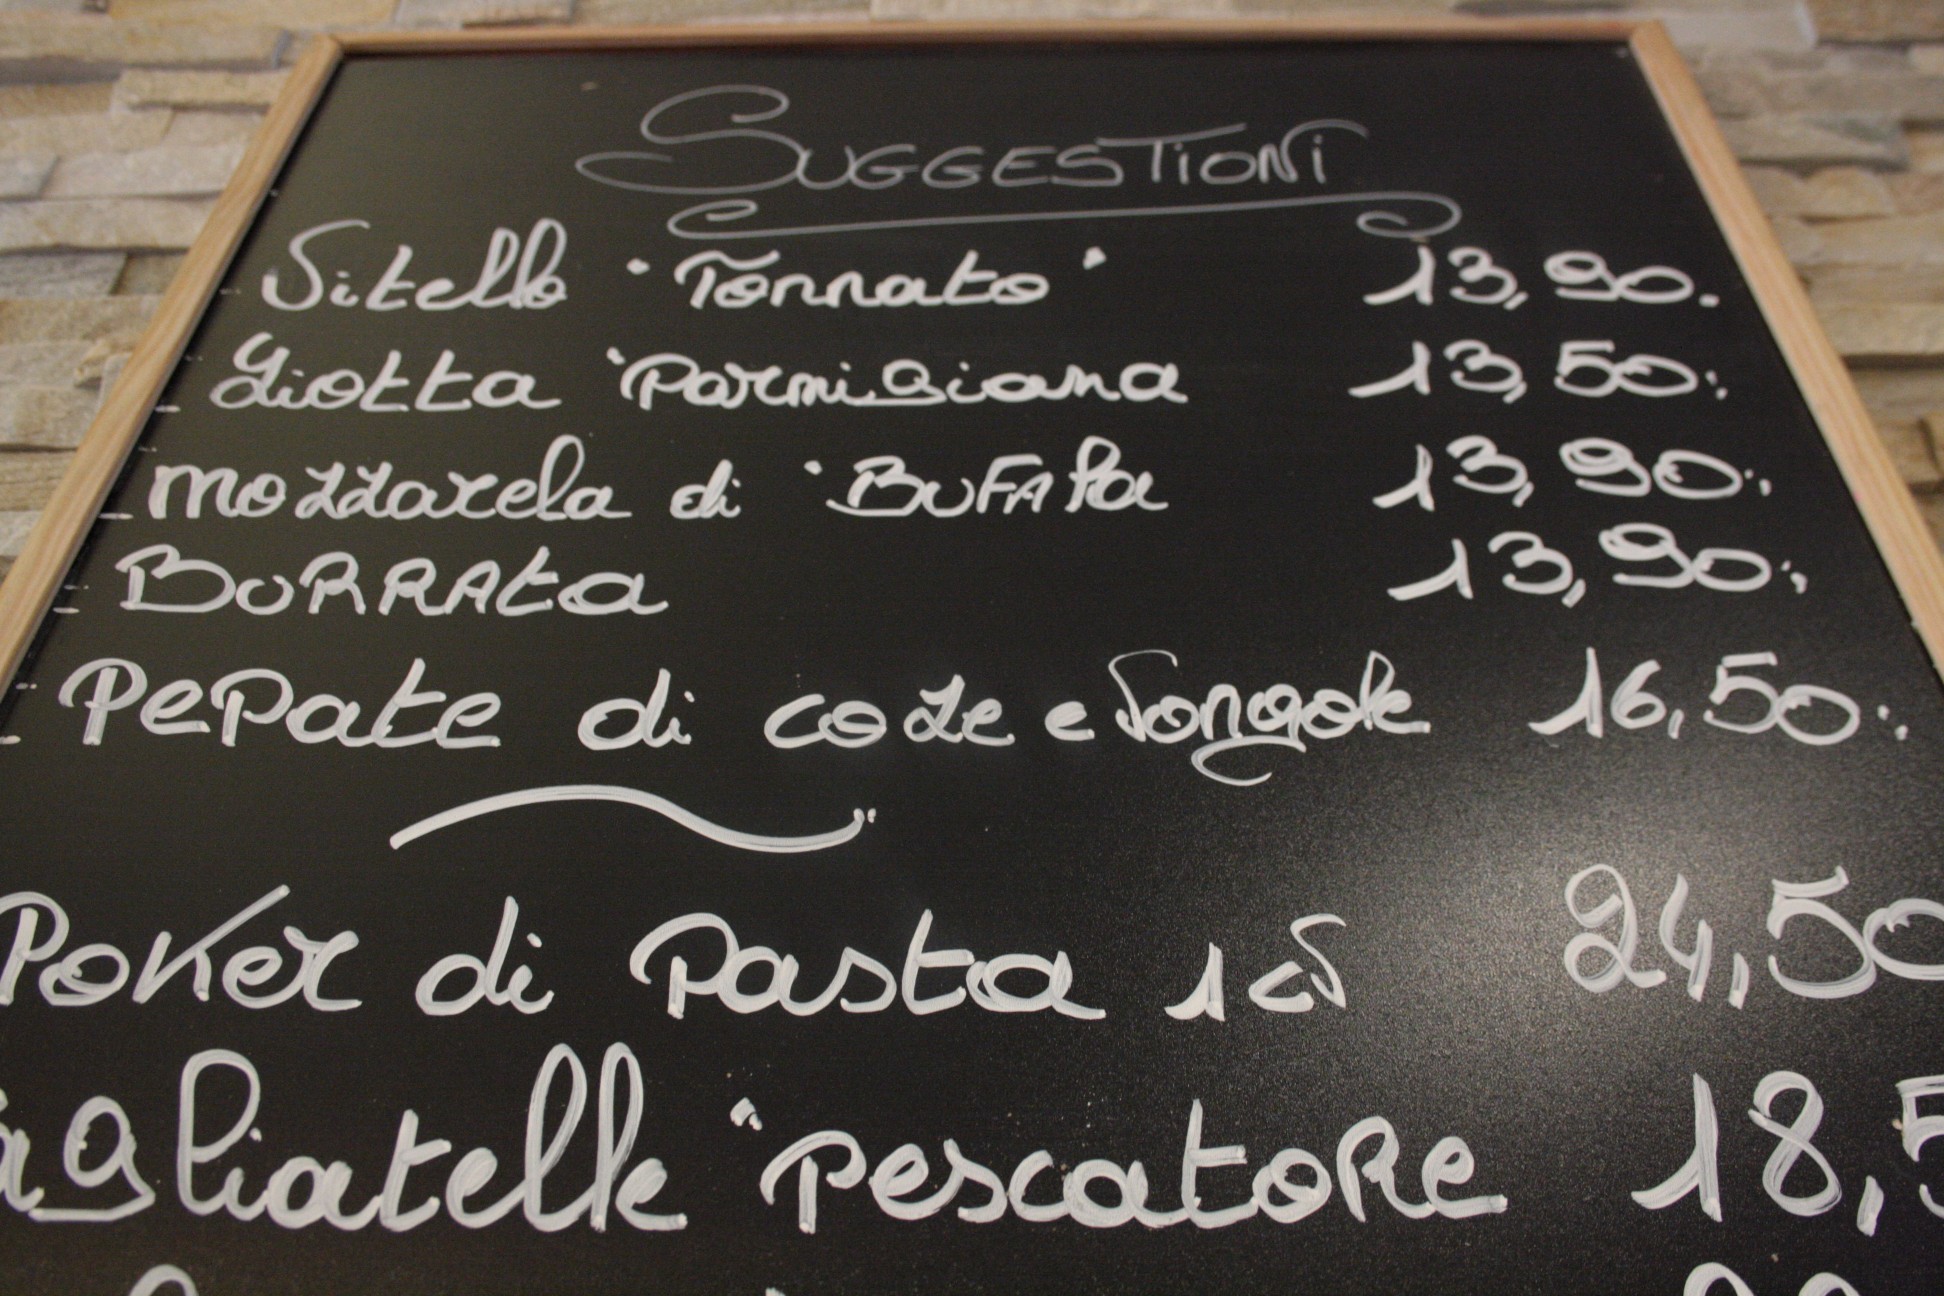 SUGGESTIONI
Vitello "Tonnato" 13,90.
Giotta "Parmigiana 13,50.
mozzarela di "BUFAla 13,90.
BURRAta 13,90.
PePate di coze e Vongole 16,50.
Poker di Pasta 24,50
agliatelle "PescatoRe 18,5